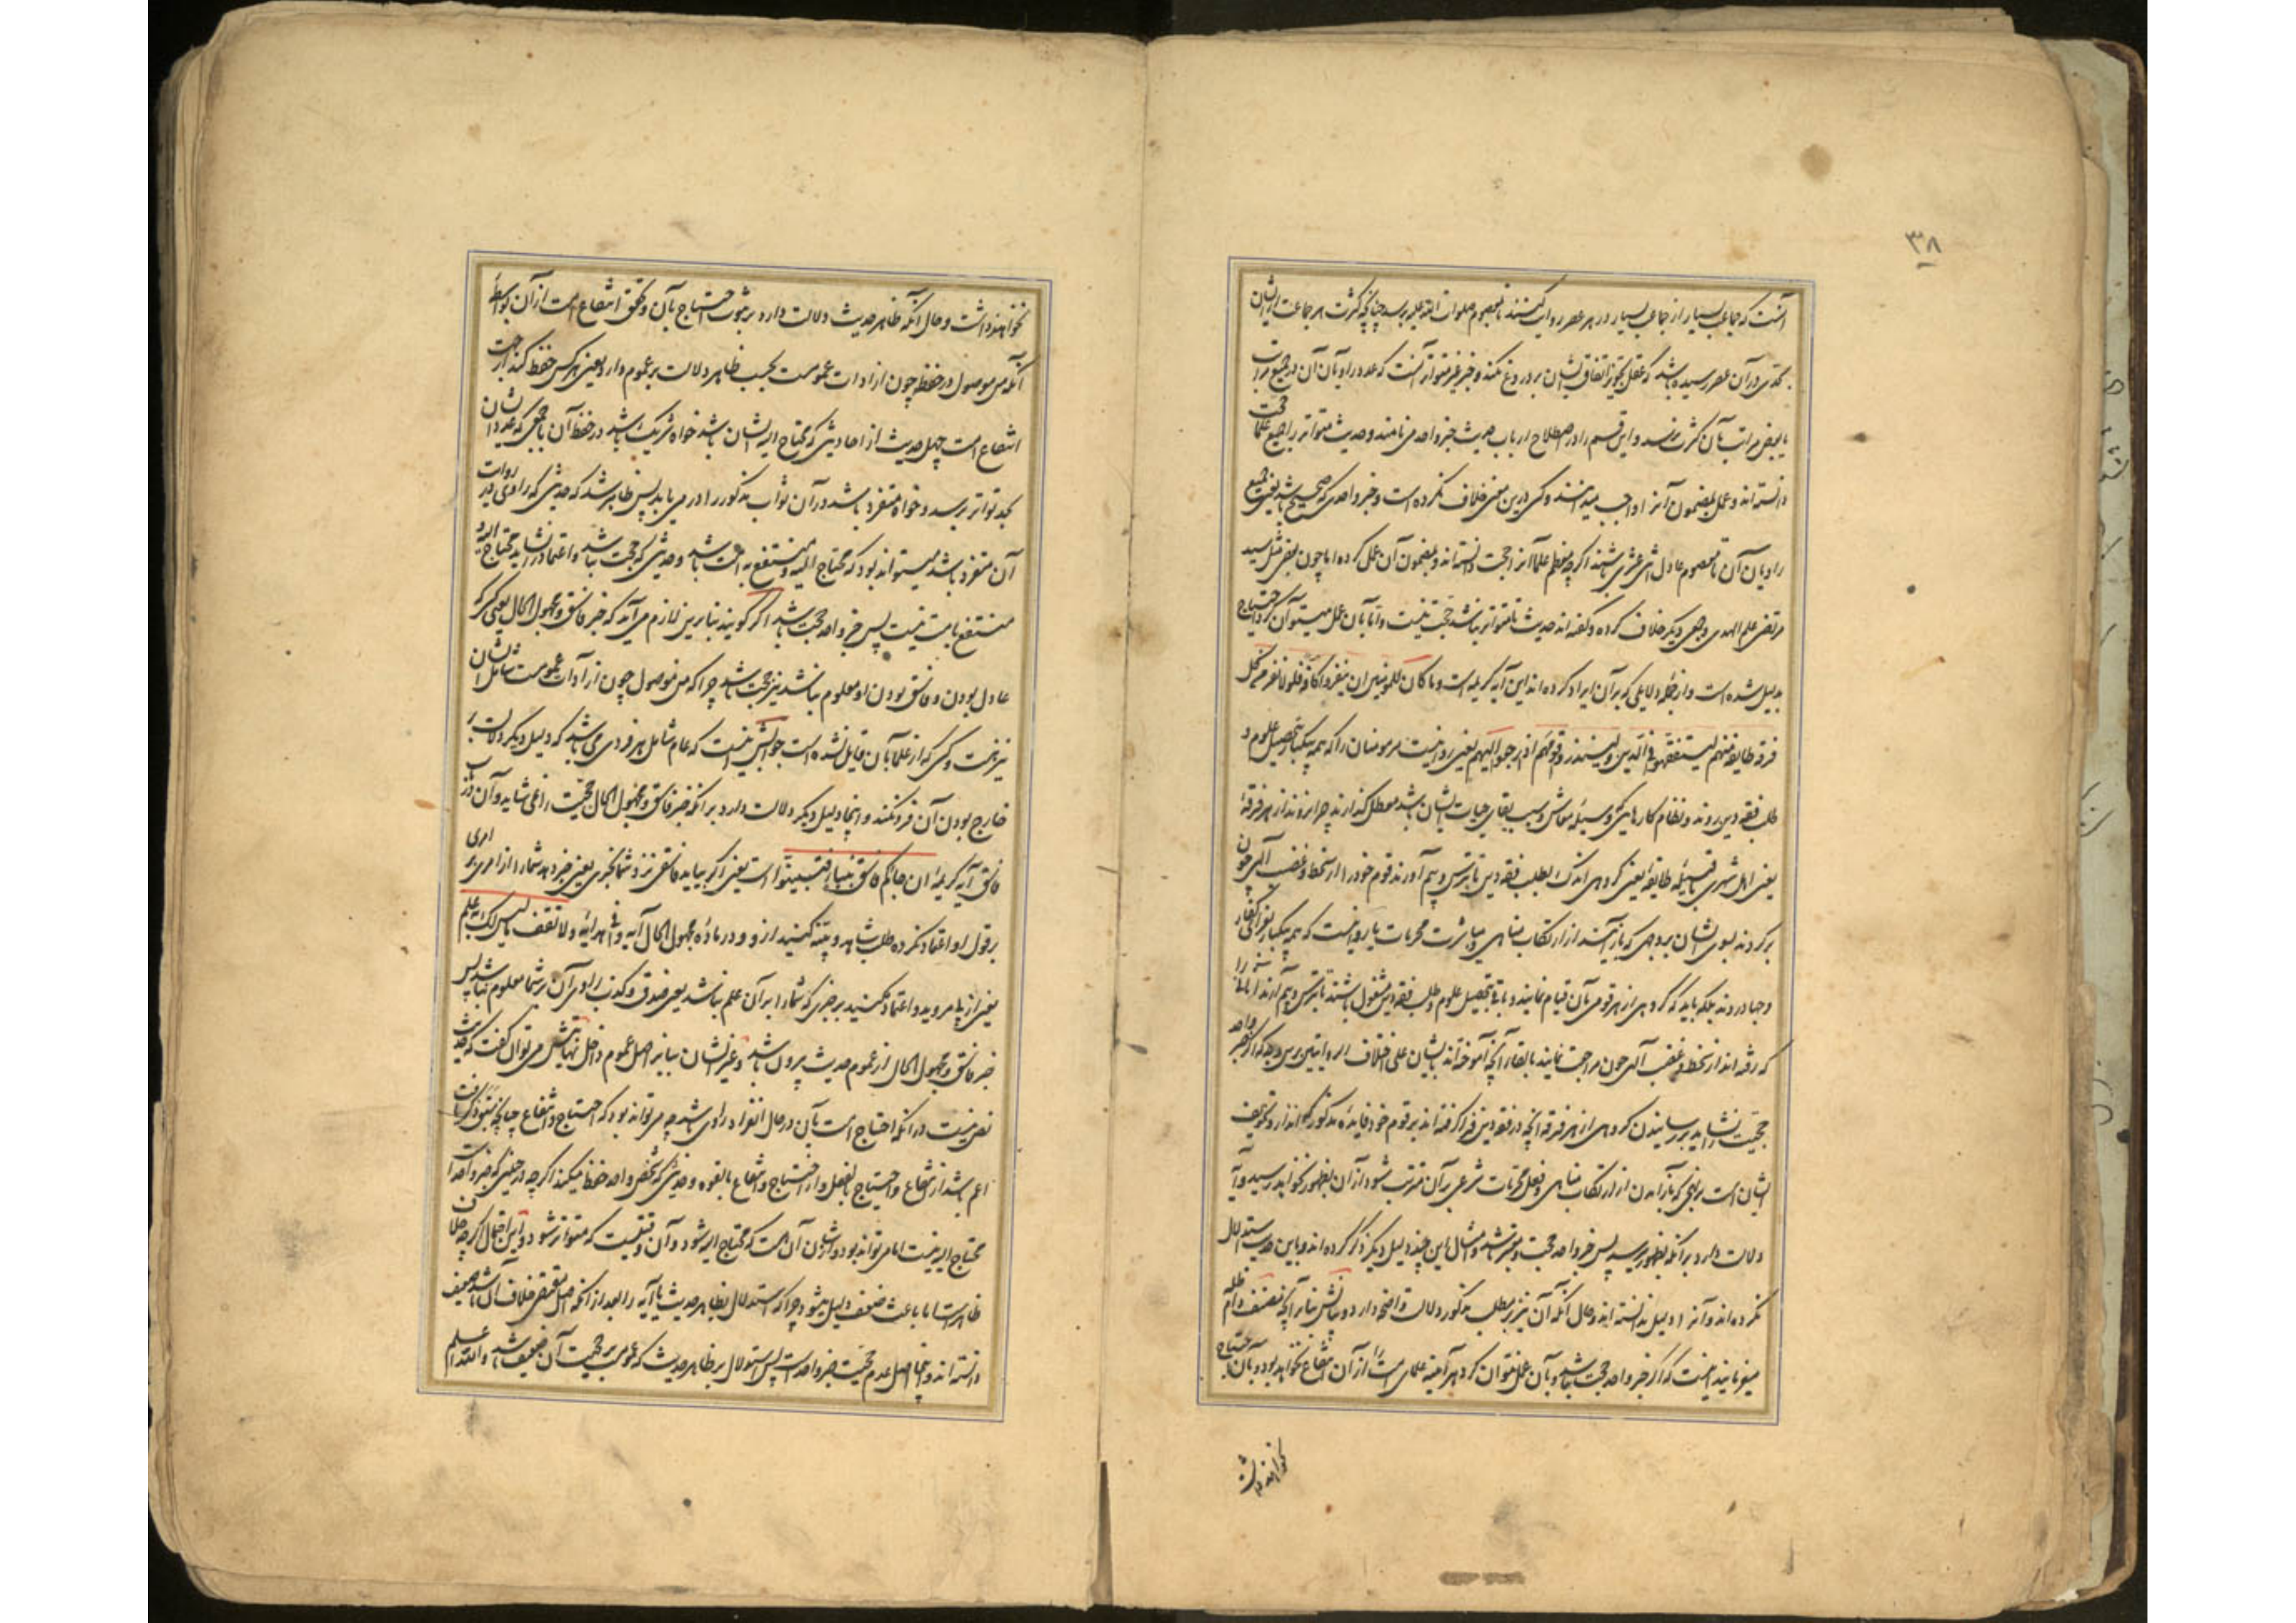 ۳۸
آنست که جماعت بسیار از جماعت بسیار در هر عصر روایت کنند تا بمعصوم صلوات الله علیه برسد چنانچه کثرت هر جماعت ازیشان
بحدی در آن عصر رسیده باشد که عقل تجویز اتفاق ایشان بر دروغ نکند و خبر غیر متواتر آنست که عدد راویان آن در جمیع مراتب
یا بعضی مراتب بآن کثرت نرسد و این قسم را در اصطلاح ارباب حدیث خبر واحد می نامند و حدیث متواتر را جمیع علما حجت
دانسته اند و عمل بمضمون آنرا واجب میدانند و کسی درین معنی خلاف نکرده است و خبر واحدی که صحیح باشد یعنی جمیع
راویان آن تا معصوم عادل اثنی عشری باشند اگرچه معظم علما آنرا حجت دانسته اند و بمضمون آن عمل کرده اما چون بعضی مثل سید
مرتضی علم الهدی و جمعی دیگر خلاف کرده و گفته اند حدیث تا متواتر نباشد حجت نیست و اما بآن عمل میتوان کرد احتیاج
بدلیل شده است و از جمله دلایلی که بر آن ایراد کرده اند این آیه کریمه است و ما کان المؤمنین ان ینفروا کافة فلولا نفر من کل
فرقة طایفة منهم لیتفقهوا فی الدین و لینذروا قومهم اذا رجعوا الیهم یعنی روا نیست مر مومنان را که همه بیکبار بتحصیل علوم و
طلب فقه دین روند و نظام کارهایی که وسیله معاش و سبب بقای حیات ایشان باشد معطل گذارند چرا نروند از هر فرقهٔ
یعنی اهل شهری یا قبیلهٔ طایفهٔ یعنی گروهی اندک بطلب فقه دین تا بترس و بیم آورند قوم خود را از سخط و غضب الهی چون
برگردند بسوی ایشان بروجهی که باز آیند از ارتکاب مناهی و مباشرت محرمات یا روا نیست که همه بیکبار بغزای کفار
و جهاد روند بلکه باید که گروهی از هر قومی بآن قیام نمایند و باقی بتحصیل علوم و طلب فقه دین مشغول باشند تا بترس و بیم آورند آنها را
که رفته اند از سخط و غضب الهی چون مراجعت نمایند بالقاء آنچه آموخته اند بایشان علی اختلاف الروایتین پس وجه که اگر خبر واحد
حجیت را نشاید بر رسانیدن گروهی از هر فرقه آنچه در فقه دین فرا گرفته اند بر قوم خود فایدهٔ مذکور که انذار و تخویف
ایشان است بر نهجی که باز آمدن از ارتکاب مناهی و فعل محرمات شرعی بر آن مترتب شود از آن بظهور نخواهد رسید و آیه
دلالت دارد بر آنکه بظهور رسد پس خبر واحد حجت و معتبر باشد و امثال این چند دلیل دیگر ذکر کرده اند و باین حدیث استدلال
نکرده اند و آنرا دلیل ندانسته اند و حال آنکه آن نیز بر مطلب مذکور دلالت واضح دارد و بیانش بنابر آنچه مصنف دام ظله
میفرمایند اینست که اگر خبر واحد حجت نباشد و بآن عمل نتوان کرد هر آینه علمای امت را از آن انتفاع نخواهد بود و بآن احتیاج
نخواهند داشت
نخواهند داشت و حال آنکه ظاهر حدیث دلالت دارد بر ثبوت احتیاج بآن و تحقق انتفاع امت از آن بواسطهٔ
آنکه من موصول در من حفظ چون از ادات عموم است بحسب ظاهر دلالت بر عموم دارد یعنی هر کس حفظ کند از جهت
انتفاع امت چهل حدیث از احادیثی که محتاج الیه ایشان باشد خواه شریک باشد در حفظ آن با جمعی که عدد ایشان
بحد تواتر برسد و خواه متفرد باشد در آن ثواب مذکور را در می یابد پس ظاهر شد که حدیثی که راوی در روایت
آن متفرد باشد میتواند بود که محتاج الیه و منتفع به امت باشد و حدیثی که حجت نباشد و اعتماد را نشاید محتاج الیه و
منتفع به امت نیست پس خبر واحد حجت باشد اگر گویند بنابرین لازم می آید که خبر فاسق و مجهول الحال یعنی کسی که
عادل بودن و فاسق بودن او معلوم نباشد نیز حجت باشد چرا که من موصول چون از ادات عموم است شامل ایشان
نیز هست و کسی که از علما بآن قایل نشده است جوابش اینست که عام شامل هر فردی می باشد که دلیل دیگر دلالت بر
خارج بودن آن فرد نکند و اینجا دلیل دیگر دلالت دارد بر آنکه خبر فاسق و مجهول الحال حجیت را نمی شاید و آن در باب
فاسق آیه کریمه ان جاءکم فاسق بنبإ فتبینوا است یعنی اگر بیاید فاسقی نزد شما بخبری یعنی خبر دهد شما را از امری بر
بر قول او اعتماد نکرده طلب شاهد و بینه کنید ازو و در مادهٔ مجهول الحال آیه وافی هدایهٔ و لا تقف ما لیس لک به علم
یعنی از پا مروید و اعتماد مکنید بر خبری که شما را بر آن علم نباشد یعنی صدق و کذب راوی آن بر شما معلوم نباشد پس
خبر فاسق و مجهول الحال از عموم حدیث بیرون باشد و غیر ایشان بنابر اصل عموم داخل نهایتش می توان گفت که حدیث
نص نیست در آنکه احتیاج امت بآن در حال انفراد راوی باشد چه می تواند بود که احتیاج و انتفاع چنانچه
اعم باشد از انتفاع و احتیاج بالفعل و از احتیاج و انتفاع بالقوه و حدیثی که شخص واحد حفظ میکند اگرچه در حینی که خبر واحد است
محتاج الیه نیست اما می تواند بود و از شان آن هست که محتاج الیه شود و آن وقتیست که متواتر شود و این احتمال اگرچه خلاف
ظاهرست اما باعث ضعف دلیل میشود چرا که استدلال بظاهر حدیث یا آیه را بعد از آنکه اصل مقتضی خلاف آن باشد ضعیف
دانسته اند و اینجا اصل عدم حجیت خبر واحد است پس استدلال بر ظاهر حدیث که عمومی بر حجیت آن ضعیف باشد و الله اعلم